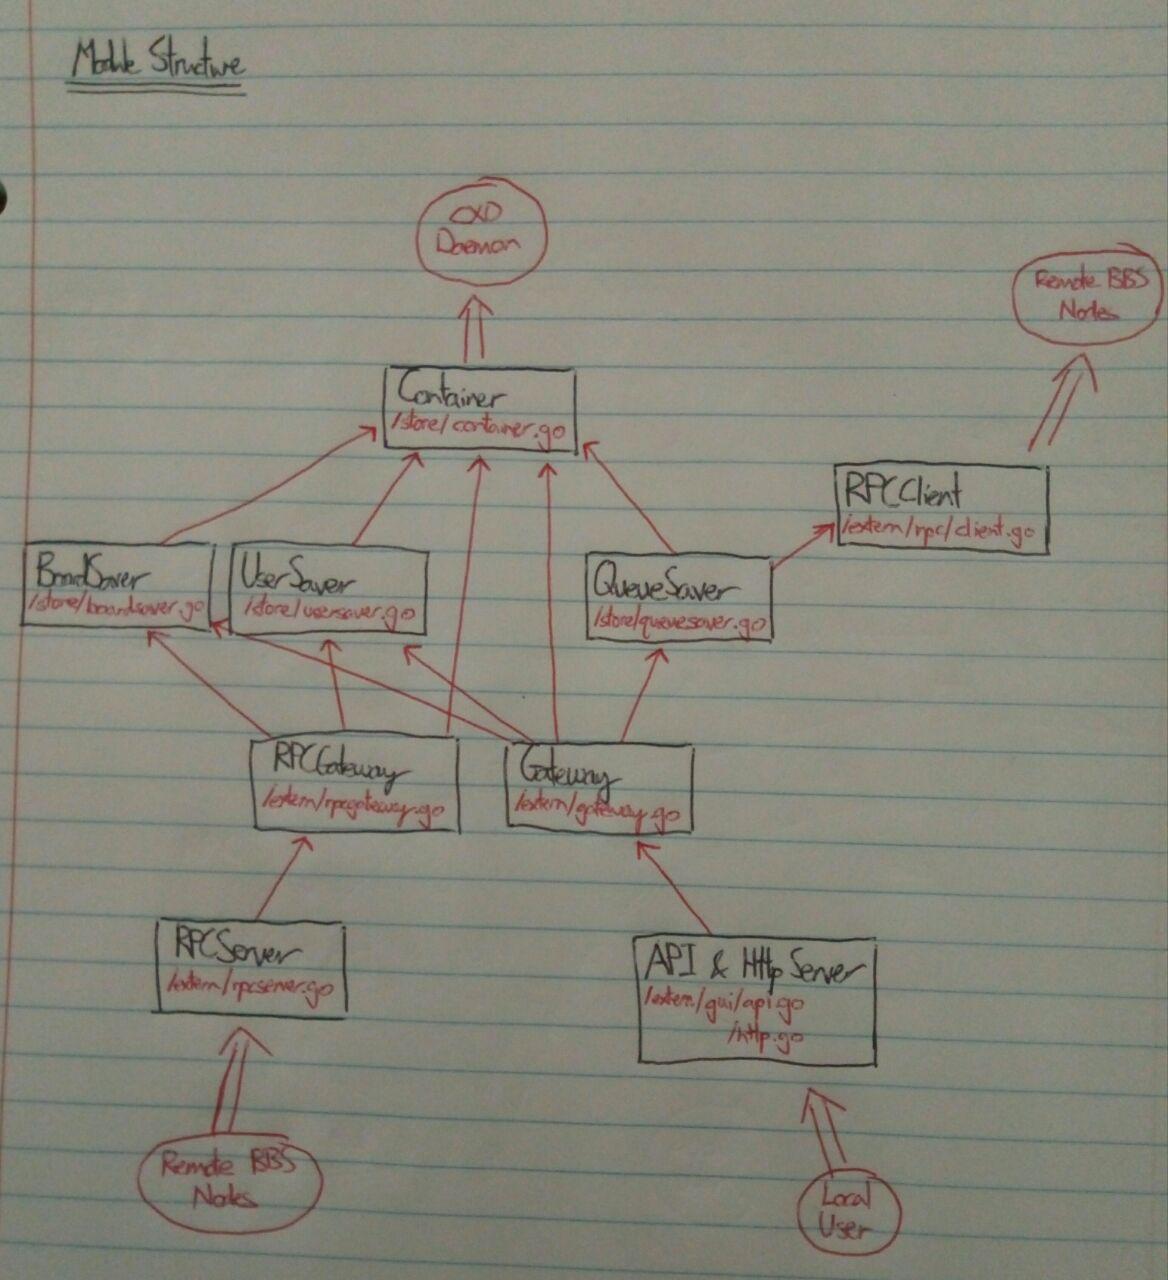 Module Structure
CXO
Daemon
Remote BBS
Nodes
Container
/store/container.go
RPCClient
/extern/rpc/client.go
BoardSaver
/store/boardsaver.go
UserSaver
/store/usersaver.go
QueueSaver
/store/queuesaver.go
RPCGateway
/extern/rpcgateway.go
Gateway
/extern/gateway.go
RPCServer
/extern/rpcserver.go
API & Http Server
/extern/gui/api.go
/http.go
Remote BBS
Nodes
Local
User